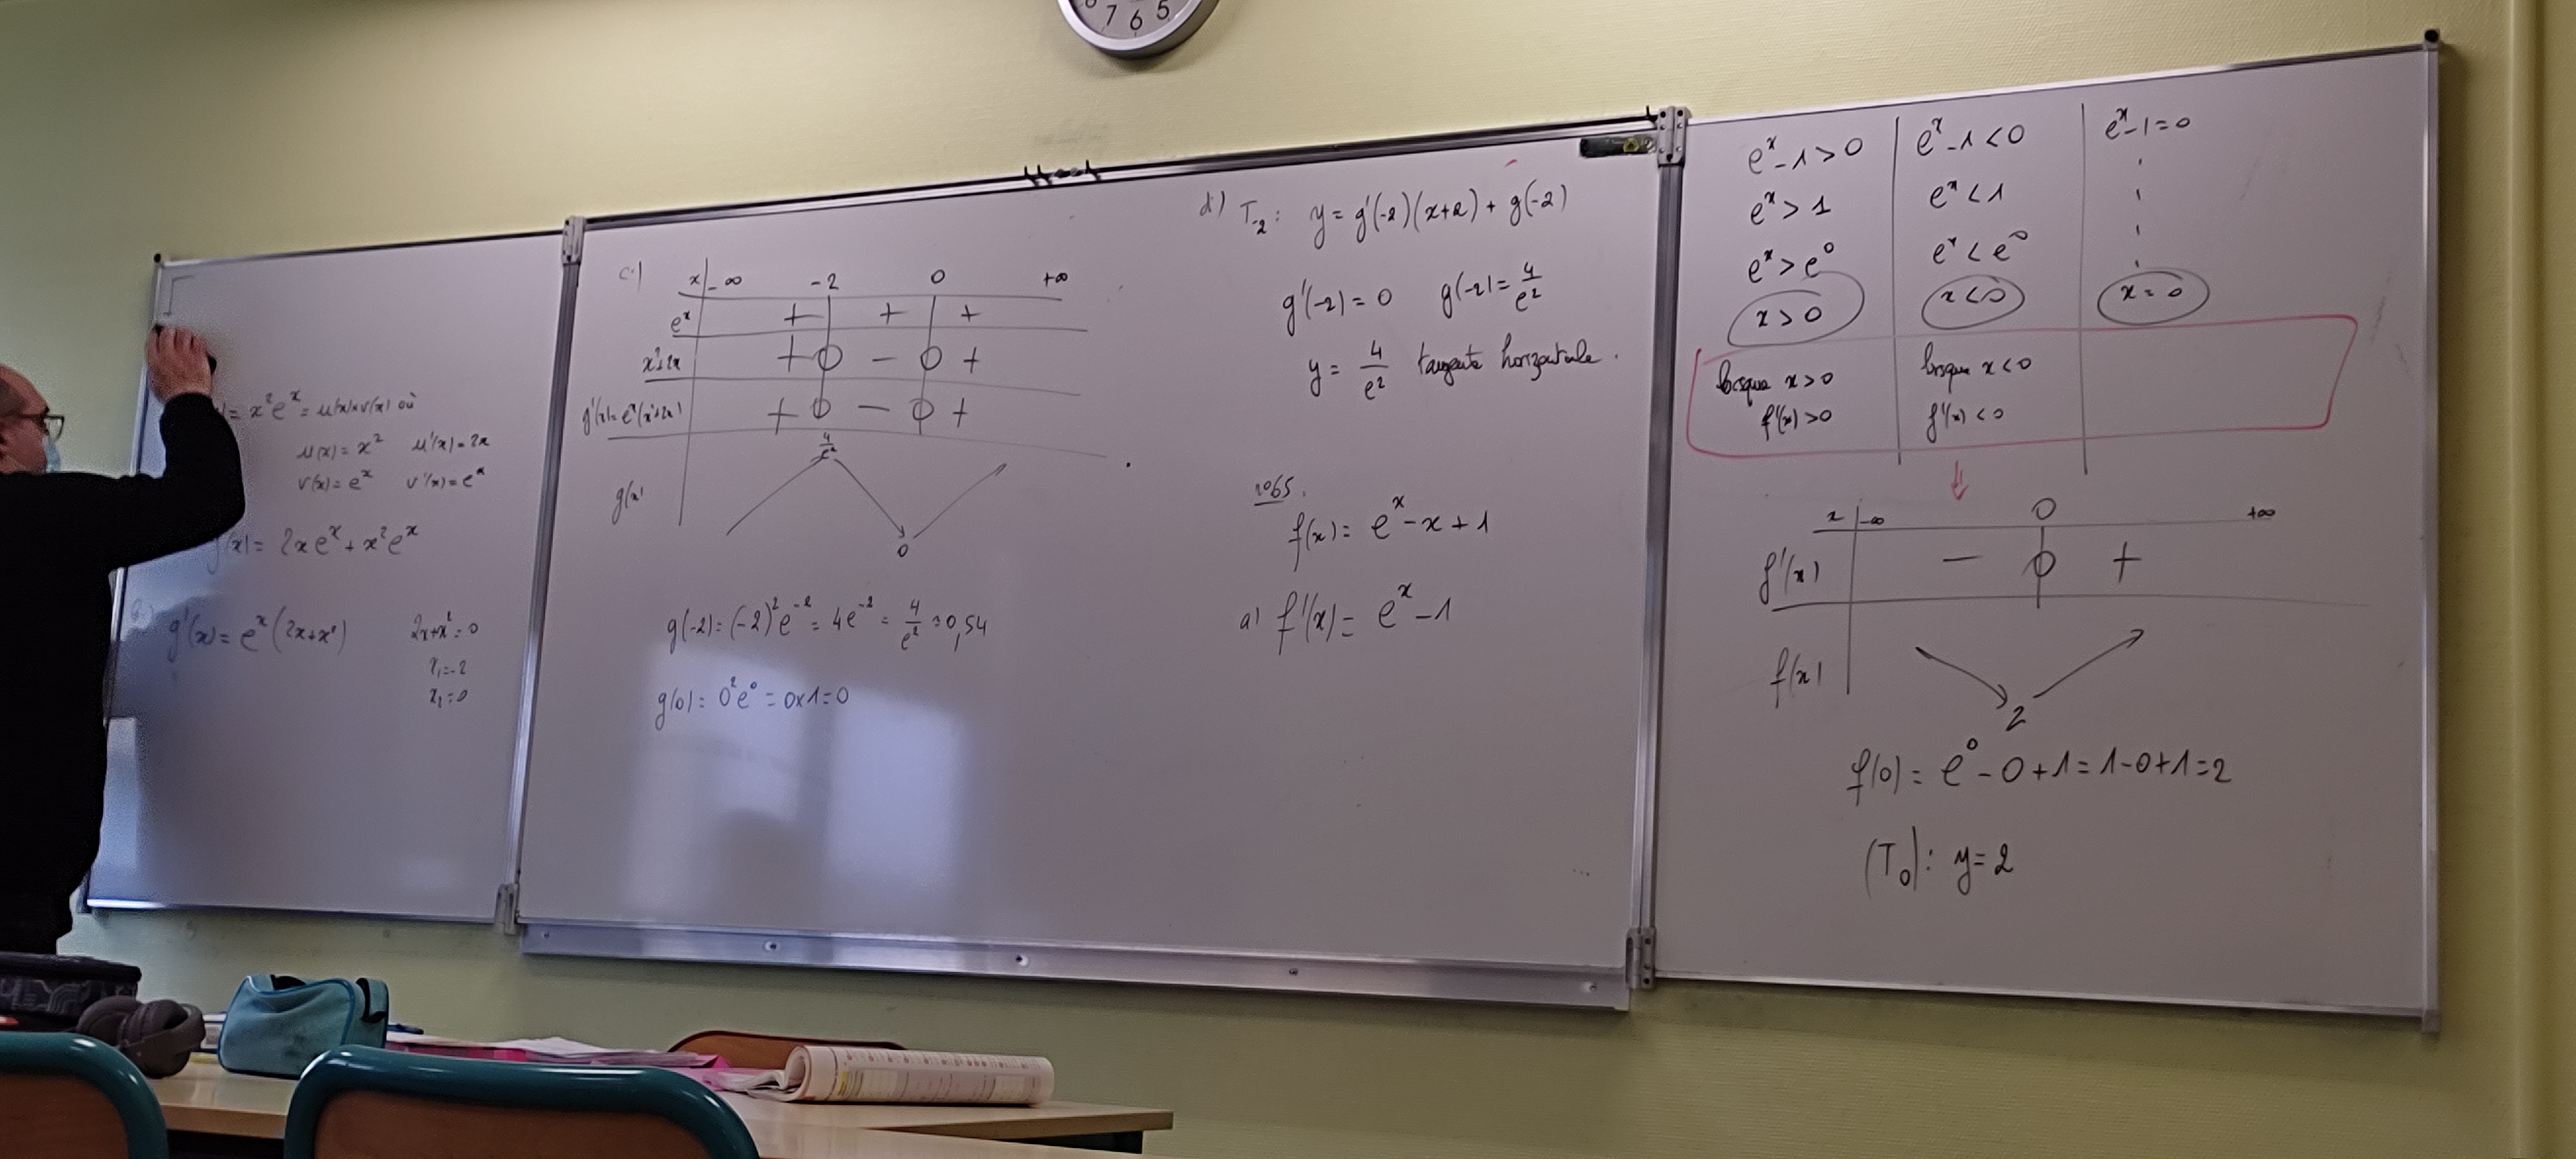 = x²eˣ = u(x)×v(x) où
u(x) = x² u'(x) = 2x
v(x) = eˣ v'(x) = eˣ
g'(x) = 2xeˣ + x²eˣ
g'(x) = eˣ(2x+x²)
2x+x² = 0
x₁ = -2
x₂ = 0
c)
x -∞ -2 0 +∞
eˣ + + +
x²+2x + 0 - 0 +
g'(x) = eˣ(x²+2x) + 0 - 0 +
g(x) 4/e² 0
g(-2) = (-2)²e⁻² = 4e⁻² = 4/e² ≈ 0,54
g(0) = 0²e⁰ = 0×1 = 0
d) T₋₂ : y = g'(-2)(x+2) + g(-2)
g'(-2) = 0 g(-2) = 4/e²
y = 4/e² tangente horizontale.
n°65.
f(x) = eˣ - x + 1
a) f'(x) = eˣ - 1
eˣ - 1 > 0
eˣ > 1
eˣ > e⁰
x > 0
lorsque x > 0
f'(x) > 0
eˣ - 1 < 0
eˣ < 1
eˣ < e⁰
x < 0
lorsque x < 0
f'(x) < 0
eˣ - 1 = 0
x = 0
x -∞ 0 +∞
f'(x) - 0 +
f(x) 2
f(0) = e⁰ - 0 + 1 = 1 - 0 + 1 = 2
(T₀) : y = 2
7 6 5